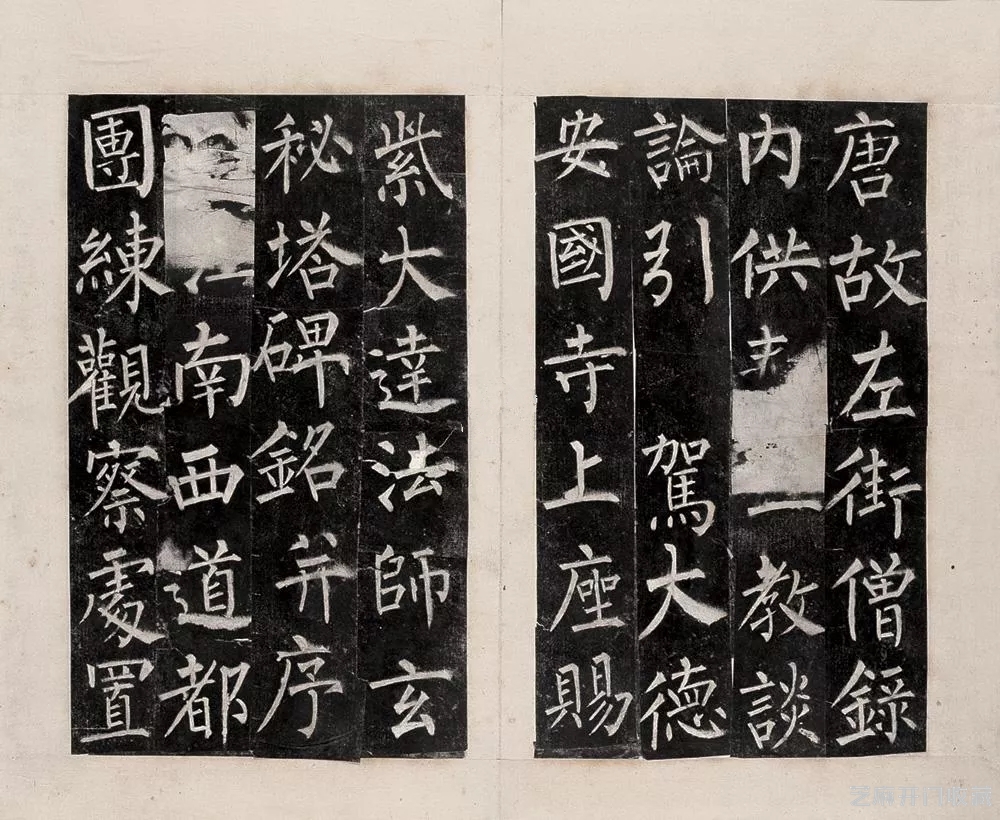 唐故左街僧錄
內供一教談
論引駕大德
安國寺上座賜
紫大達法師玄
秘塔碑銘并序
江南西道都
團練觀察處置